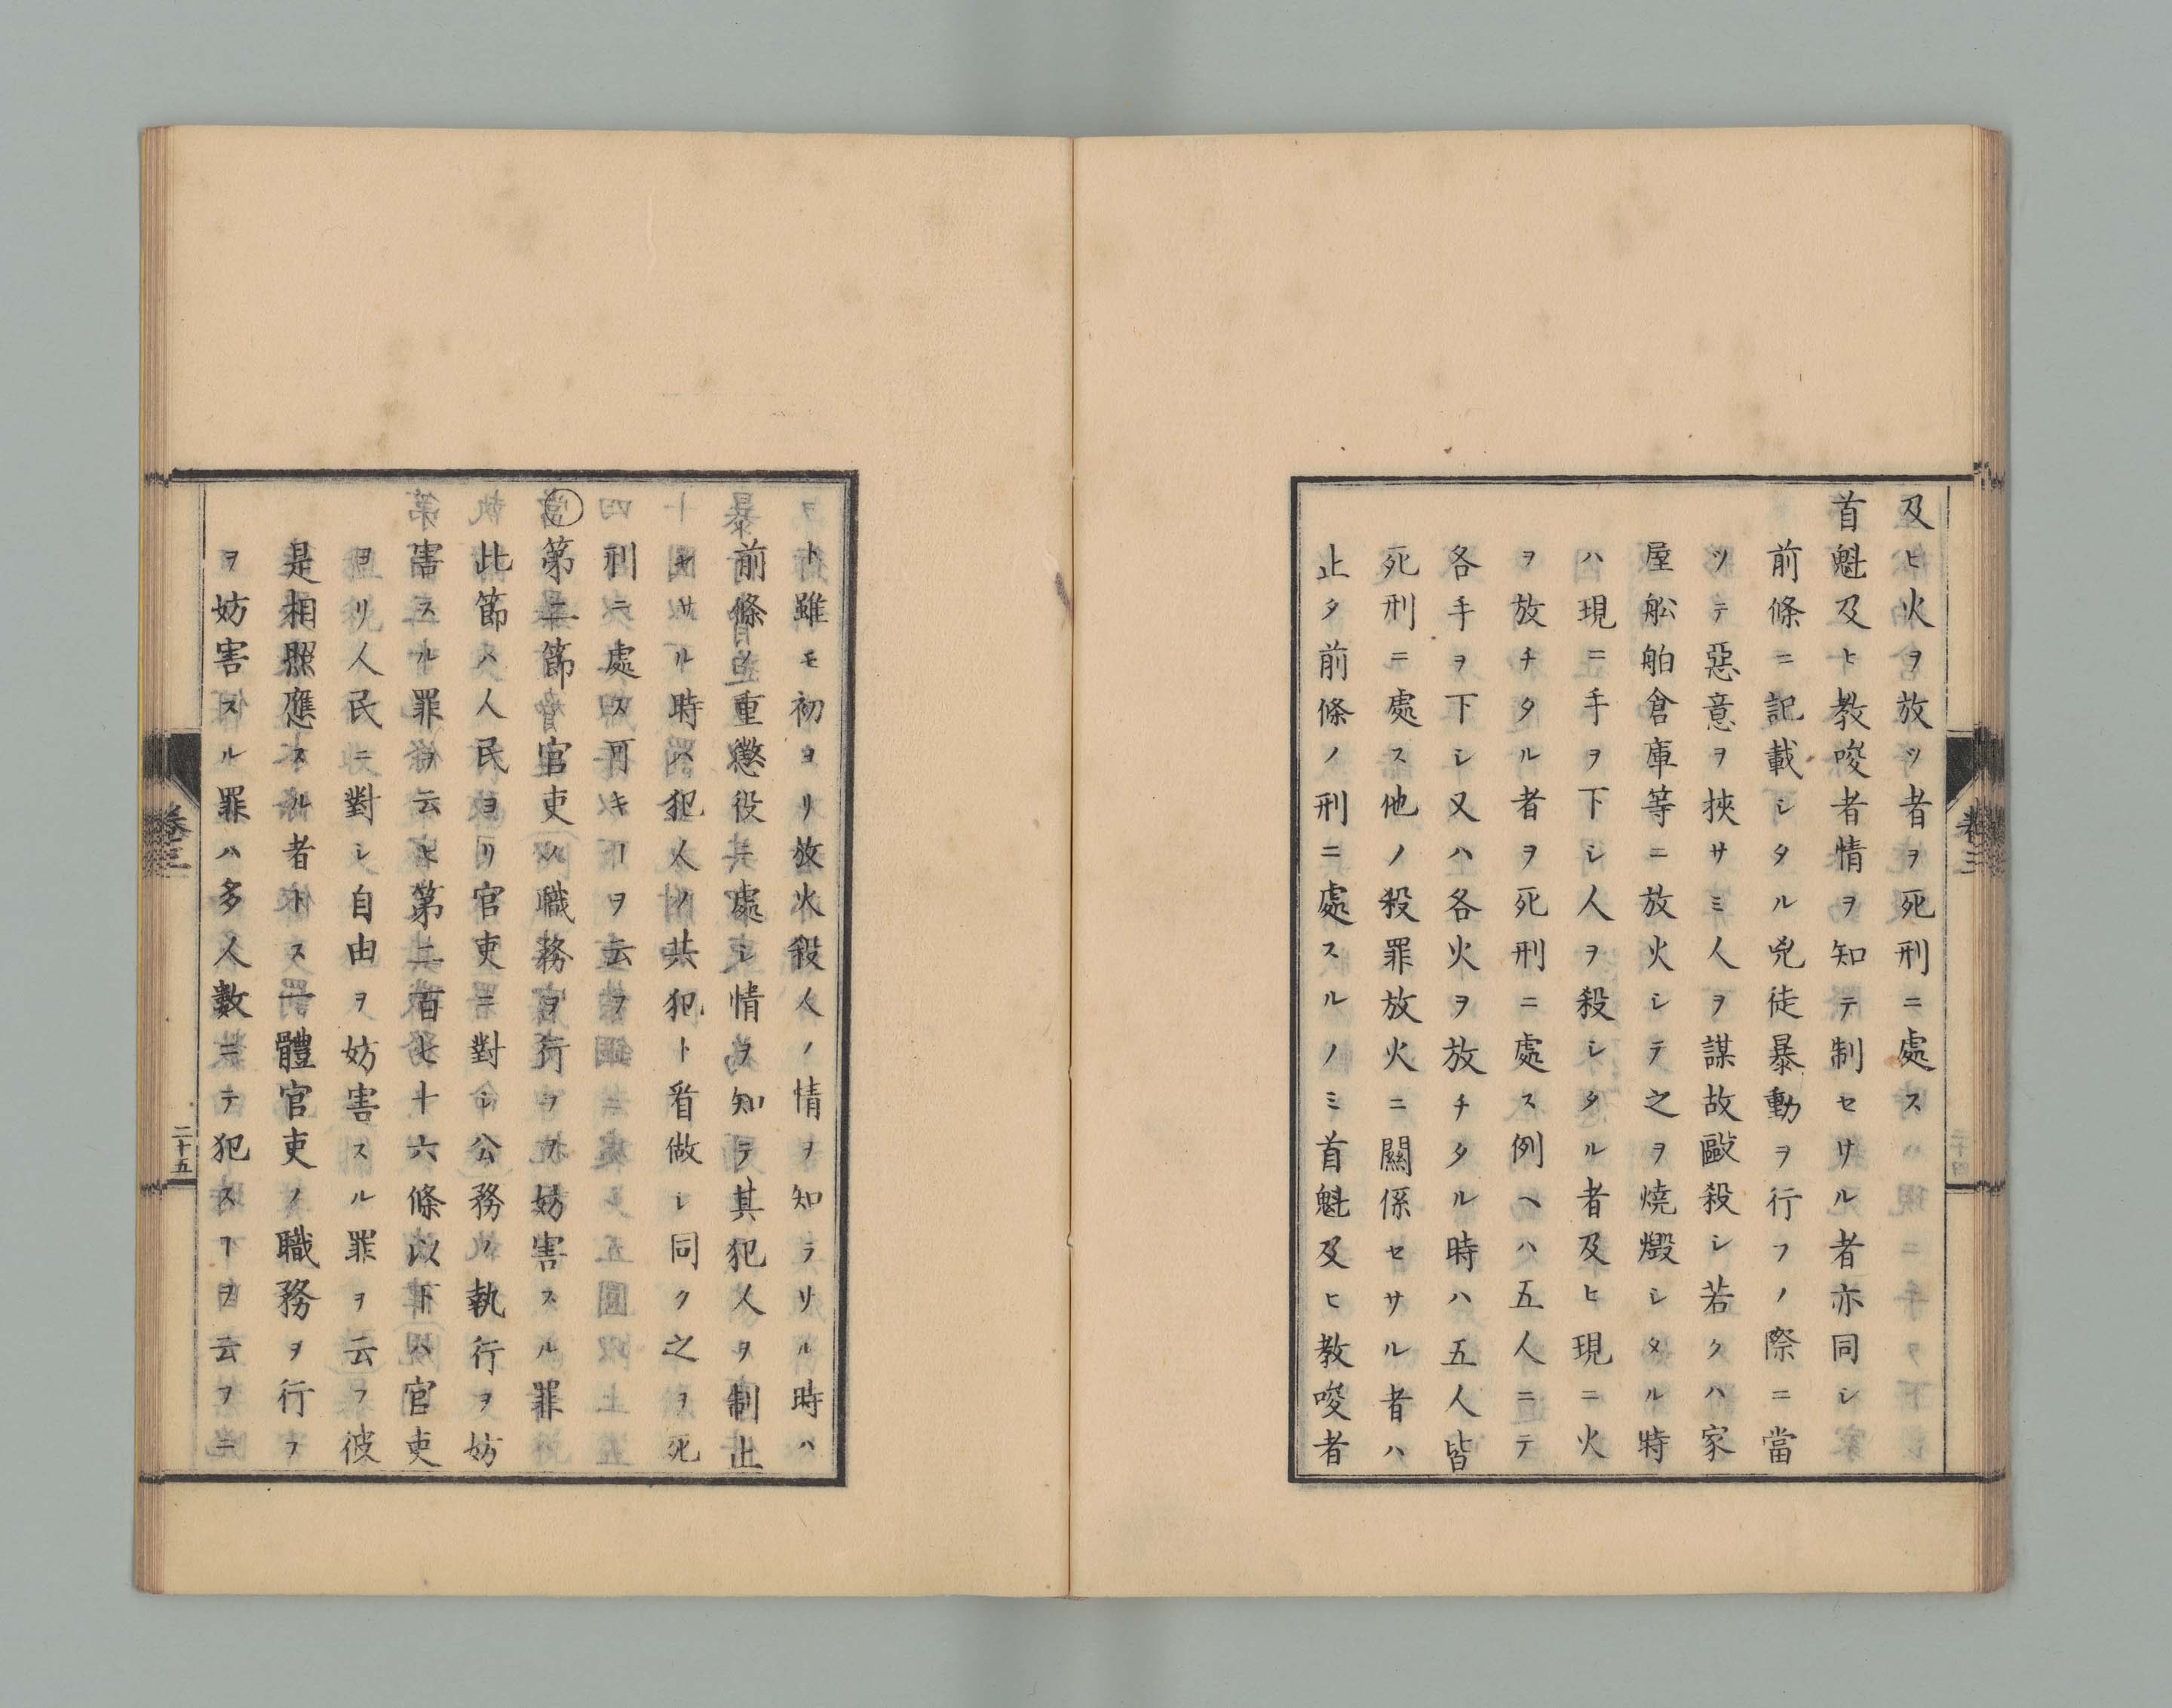 及ヒ火ヲ放ツ者ヲ死刑ニ處ス
首魁及ヒ教唆者情ヲ知テ制セサル者亦同シ
前條ニ記載シタル兇徒暴動ヲ行フノ際ニ當
ツテ惡意ヲ挾サミ人ヲ謀故毆殺シ若クハ家
屋舩舶倉庫等ニ放火シテ之ヲ燒燬シタル時
ハ現ニ手ヲ下シ人ヲ殺シタル者及ヒ現ニ火
ヲ放チタル者ヲ死刑ニ處ス例ヘハ五人ニテ
各手ヲ下シ又ハ各火ヲ放チタル時ハ五人皆
死刑ニ處ス他ノ殺罪放火ニ關係セサル者ハ
止タ前條ノ刑ニ處スルノミ首魁及ヒ教唆者
卷三
ト雖モ初ヨリ放火殺人ノ情ヲ知ラサル時ハ
前條ノ重懲役ニ處シ情ヲ知テ其犯人ヲ制止
セサル時ハ犯人ノ共犯ト看做シ同ク之ヲ死
刑ニ處ス可キヿヲ云フ
第二節 官吏ノ職務ヲ行フヲ妨害スル罪
此節ハ人民ヨリ官吏ニ對シ公務ノ執行ヲ妨
害スル罪ヲ云ヒ第二百七十六條以下ハ官吏
ヨリ人民ニ對シ自由ヲ妨害スル罪ヲ云フ彼
是相照應スル者トス一體官吏ノ職務ヲ行フ
ヲ妨害スル罪ハ多人數ニテ犯スヿヲ云フニ
卷三
二十五